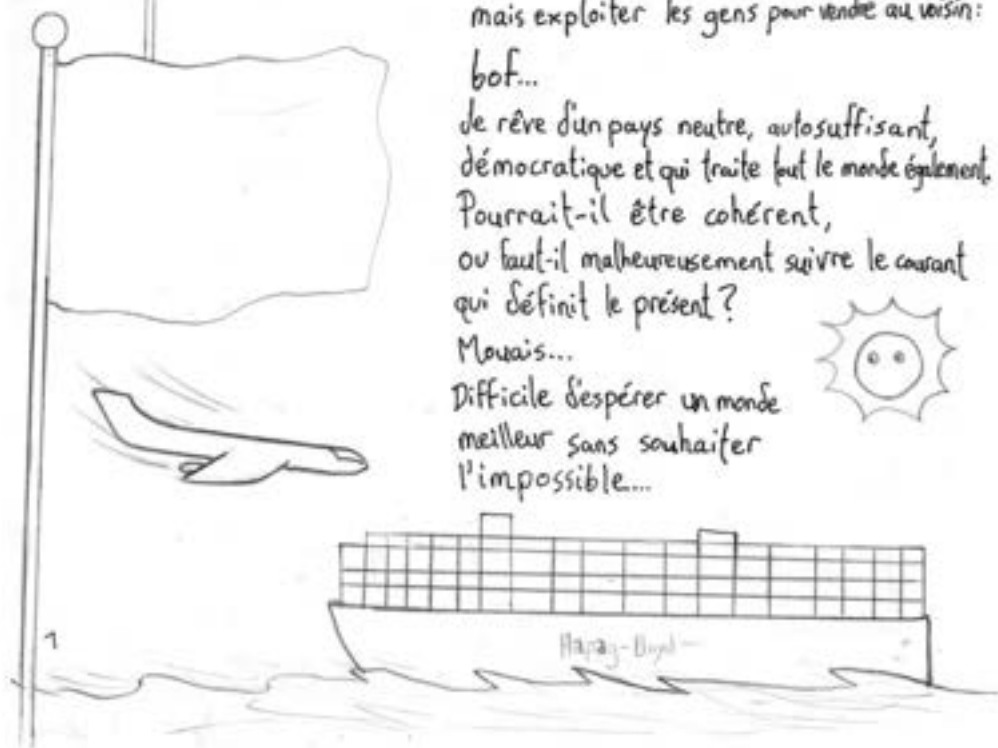 mais exploiter les gens pour vendre au voisin:
bof...
Je rêve d'un pays neutre, autosuffisant,
démocratique et qui traite tout le monde également.
Pourrait-il être cohérent,
ou faut-il malheureusement suivre le courant
qui définit le présent?
Mouais...
Difficile d'espérer un monde
meilleur sans souhaiter
l'impossible....
Hapag-Lloyd
1